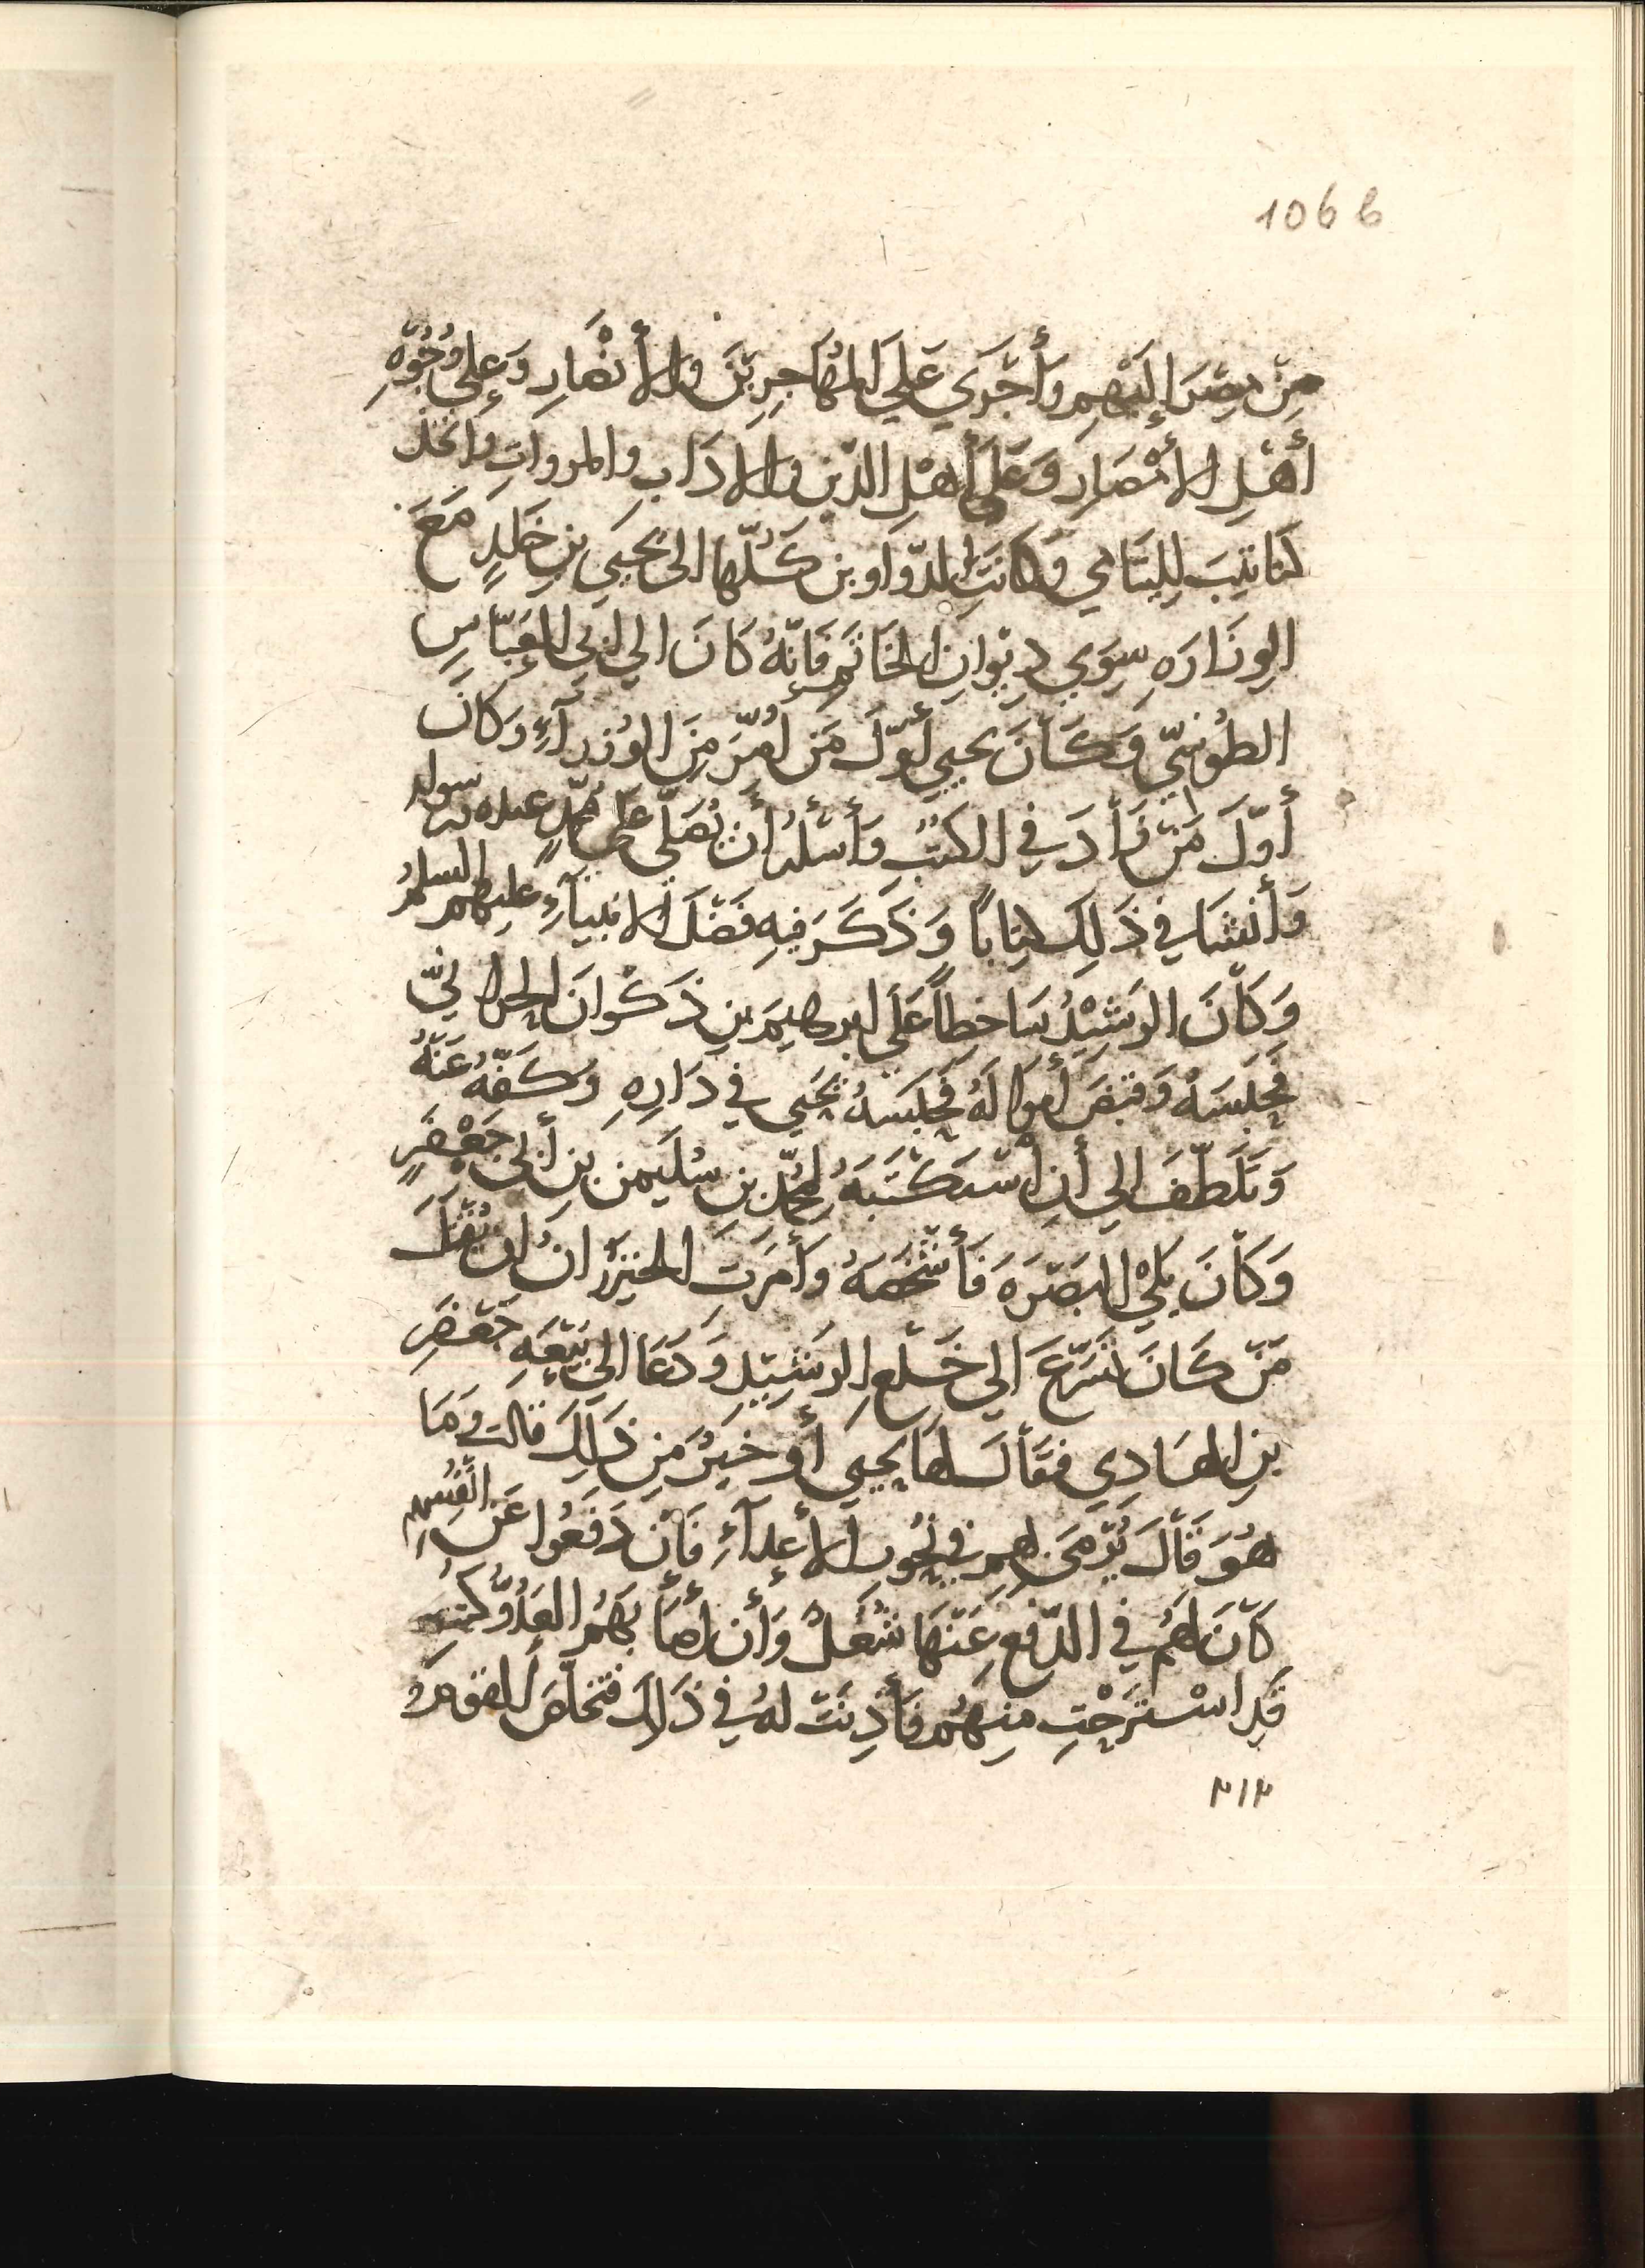 106 b
مِنْ مِصْرَ إِلَيْهِم وأَجْرَي عَلَي المُهَاجِرِيْنَ والأَنْصَارِ وَعَلِي وُجُوْهِ
أَهْلِ الأَمْصَارِ وَعَلَى أَهْلِ الدّين والادَابِ والمروات واتّخذ
كتاتِيبَ لِليَتَامي وَكَانَتِ الدّوَاوين كُلّها الى يحيَي بنِ خَلِدٍ مَعَ
الوِزَارَهِ سِوَي دِيْوانِ الخَاتَمِ فَإنّهُ كَانَ الي ابي العَبّاسِ
الطُوسِيّ وَكَانَ يحيي أوّلَ مَن أُمِّرَ مِنَ الوُزرآءِ وَكانَ
أوّلَ مَنْ زَأدَ في الكتبِ وَأَسْئَلُه أن يُصَلّي عَلَى مُحمّدٍ عبده ورسوله
وَأَنْشَا في ذَلِكَ كِتَاباً وَذَكَرَ فيهِ فَضْلَ الانبيآءِ عليهم السلمُ
وَكَأنَ الرَشِيْدُ سَاخِطاً عَلَي ابرهيمَ بنِ ذَكْوانَ الحرانيّ
فحَبَسَهُ وَقبَضَ أموالَهُ فحَبَسَهُ يحَيي في دَارِهِ وَكَفّهُ عَنْهُ
وَتَلَطّفَ الي أنِ أسْتَكْتَبَهُ لمُحمّد بنِ سُلَيمن بنِ أبي جَعْفَرٍ
وَكَأنَ يَلِيْ البَصْرَهَ فَأَشْخَصَهُ وأَمَرَتِ الخَيْزُرَانُ ان يُقْتَلَ
مَنْ كَانَ تسَرّعَ الي خَلْعِ الرَشِيْدِ وَدَعَا الي بَيْعَهِ جَعْفَرِ
بنِ الهَادِي فَقَألَ لهَا يحيَي أوَ خَيْرٌ مِن ذَلِكَ قالت وَمَا
هُوَ قَألَ يُرْمَى بهم في نُحُورِ الأعدآءِ فَأنْ دَفَعُوا عَن انْفُسِهِم
كَأنَ لَهُم في الدّفعِ عَنْهَا شُغلٌ وَأَن أصَأ بَهُمُ العَدُوُّ كنتِ
قَدِ اسْتَرَحْتِ مِنهُم فَأَذِنَتْ لَهُ في ذَلِكَ فتخلّصَ القومُ
٢١٢